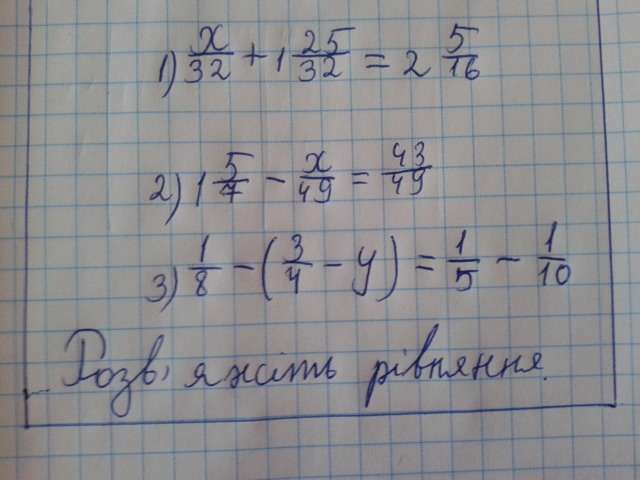 1) x/32 + 1 25/32 = 2 5/16
2) 1 5/7 - x/49 = 43/49
3) 1/8 - (3/4 - y) = 1/5 - 1/10
Розв'яжіть рівняння.